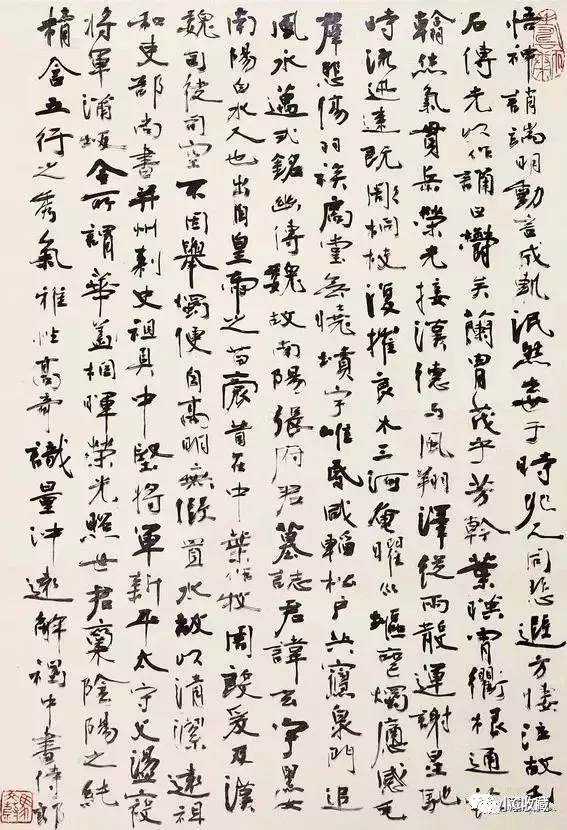 悟神誚端明動言成軌泯然去于時兆人同悲遐方悽泣故刊
石傳光以作誦曰鬱矣蘭胄茂乎芳幹葉映霄衢根通海
翰氣貫岳榮光接漢德与風翔澤從雨散運謝星馳
時流迅速既彫桐枝復摧良木三河奄曜喪燭感毛
群悲傷羽族扃堂無曉墳宇唯昏咸轀松戶共寢泉門追
風永邁式銘幽傳魏故南陽張府君墓誌君諱玄字黑女
南陽白水人也出自皇帝之苗裔昔在中葉作牧周殷爰及漢
魏司徒司空不因舉燭便自高明無假置水故以清潔遠祖
和吏部尚書并州刺史祖具中堅將軍新平太守父盪寇
將軍蒲坂令所謂華蓋相暉榮光照世君稟陰陽之純
精含五行之秀氣雅性高奇識量沖遠解褐中書侍郎